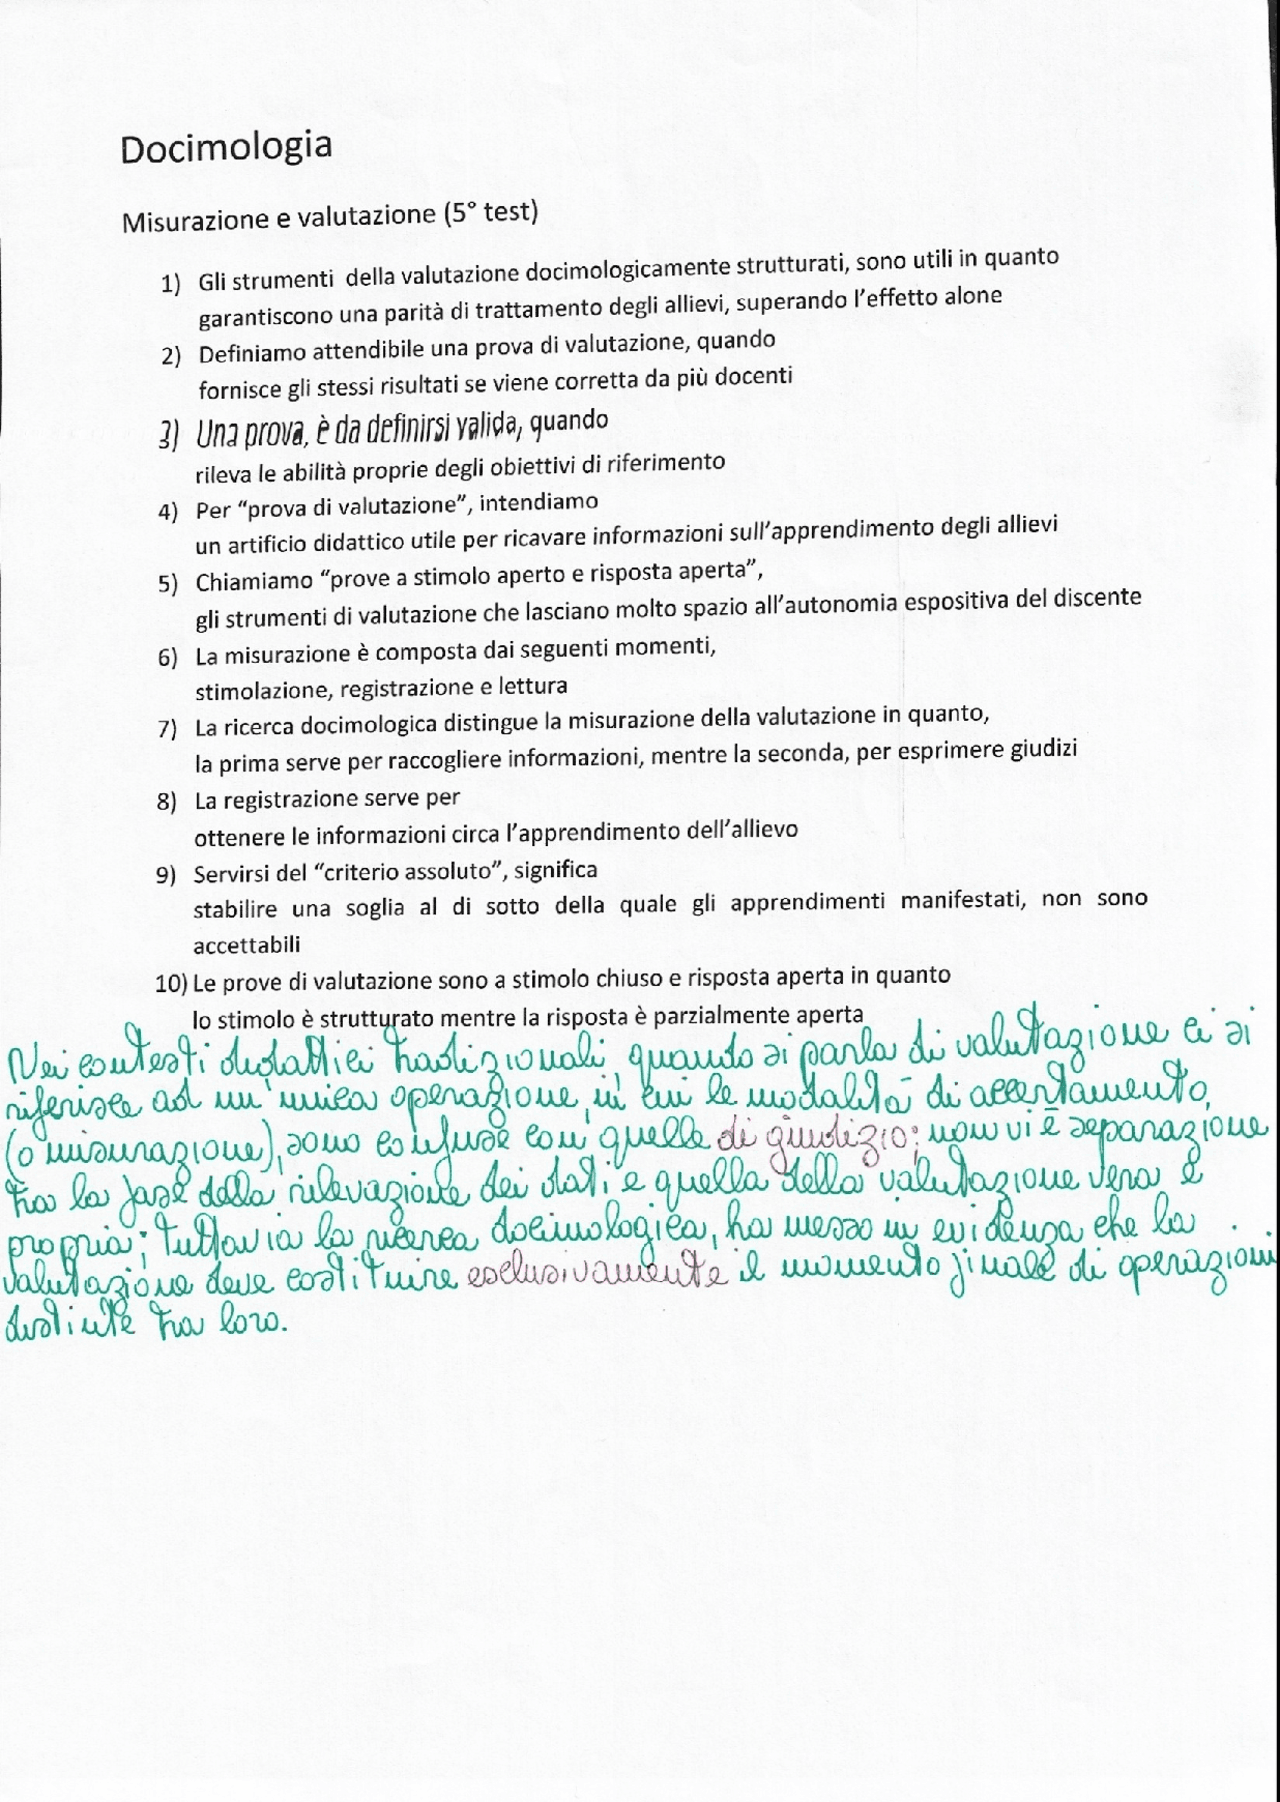 Docimologia
Misurazione e valutazione (5° test)
1) Gli strumenti della valutazione docimologicamente strutturati, sono utili in quanto
garantiscono una parità di trattamento degli allievi, superando l'effetto alone
2) Definiamo attendibile una prova di valutazione, quando
fornisce gli stessi risultati se viene corretta da più docenti
3) Una prova, è da definirsi valida, quando
rileva le abilità proprie degli obiettivi di riferimento
4) Per "prova di valutazione", intendiamo
un artificio didattico utile per ricavare informazioni sull'apprendimento degli allievi
5) Chiamiamo "prove a stimolo aperto e risposta aperta",
gli strumenti di valutazione che lasciano molto spazio all'autonomia espositiva del discente
6) La misurazione è composta dai seguenti momenti,
stimolazione, registrazione e lettura
7) La ricerca docimologica distingue la misurazione della valutazione in quanto,
la prima serve per raccogliere informazioni, mentre la seconda, per esprimere giudizi
8) La registrazione serve per
ottenere le informazioni circa l'apprendimento dell'allievo
9) Servirsi del "criterio assoluto", significa
stabilire una soglia al di sotto della quale gli apprendimenti manifestati, non sono
accettabili
10) Le prove di valutazione sono a stimolo chiuso e risposta aperta in quanto
lo stimolo è strutturato mentre la risposta è parzialmente aperta
Nei contesti didattici tradizionali, quando si parla di valutazione ci si
riferisce ad un'unica operazione, in cui le modalità di accertamento,
(o misurazione), sono confuse con quelle di giudizio; non vi è separazione
tra la fase della rilevazione dei dati e quella della valutazione vera e
propria; tuttavia la ricerca docimologica, ha messo in evidenza che la
valutazione deve costituire esclusivamente il momento finale di operazioni
distinte tra loro.